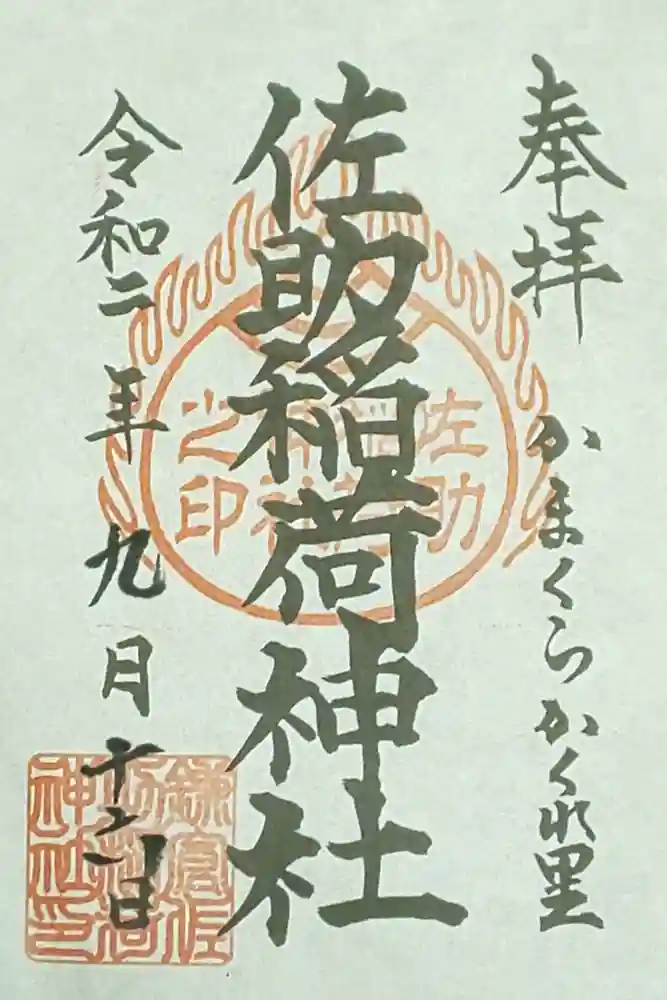 奉拝 かまくらかくれ里
佐助稲荷神社
令和二年九月十 日
佐助
之印
鎌倉佐
助稲荷
神社印